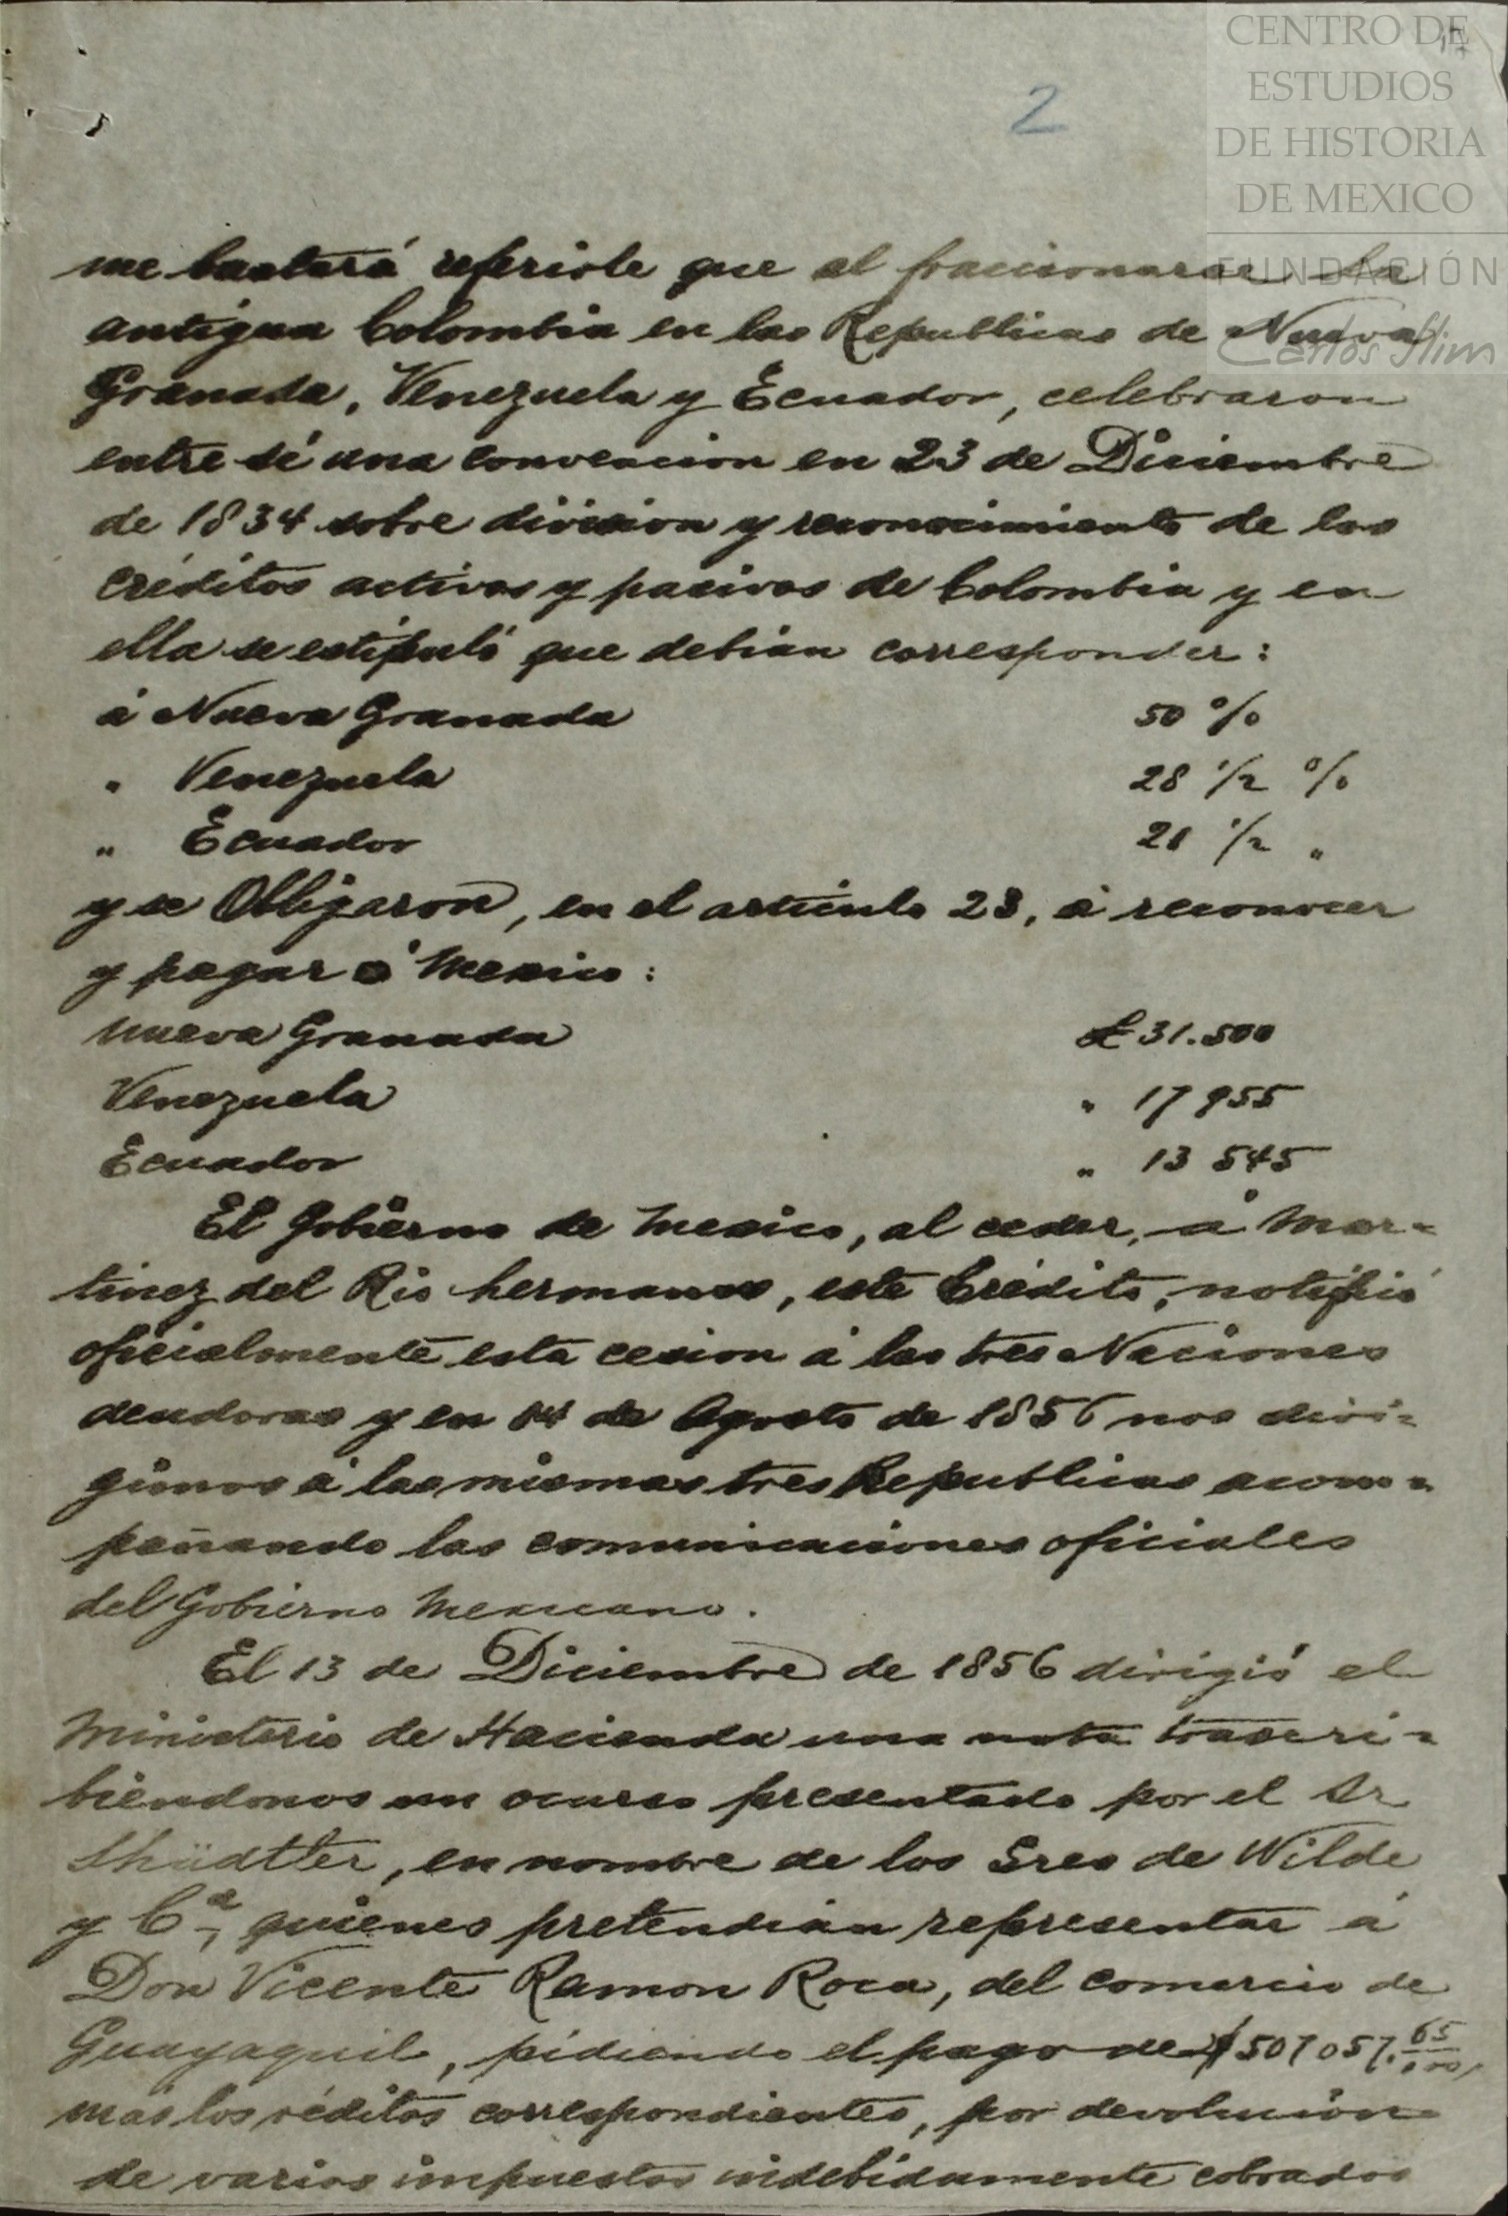 CENTRO DE
ESTUDIOS
DE HISTORIA
DE MEXICO
FUNDACIÓN
Carlos Slim
2
me bastará referirle que al fraccionarse la
antigua Colombia en las Republicas de Nueva
Granada, Venezuela y Ecuador, celebraron
entre sí una convencion en 23 de Diciembre
de 1834 sobre division y reconocimiento de los
créditos activos y pasivos de Colombia y en
ella se estipuló que debian corresponder:
á Nueva Granada 50 %
" Venezuela 28 1/2 %
" Ecuador 21 1/2 "
y se Obligaron, en el articulo 23, á reconocer
y pagar á Mexico:
Nueva Granada £ 31.500
Venezuela " 17 955
Ecuador " 13 545
El Gobierno de Mexico, al ceder, á Mar=
tinez del Rio hermanos, este Crédito, notificó
oficialmente esta cesion á las tres Naciones
deudoras y en 14 de Agosto de 1856 nos diri=
gimos á las mismas tres Republicas acom=
pañando las comunicaciones oficiales
del Gobierno Mexicano.
El 13 de Diciembre de 1856 dirigió el
Ministerio de Hacienda una nota trascri=
biendonos un ocurso presentado por el Sr
Shüdtter, en nombre de los Sres de Wilde
y Cª, quienes pretendian representar á
Don Vicente Ramon Roca, del comercio de
Guayaquil, pidiendo el pago de $507 057. 65/100,
mas los réditos correspondientes, por devolucion
de varios impuestos indebidamente cobrados